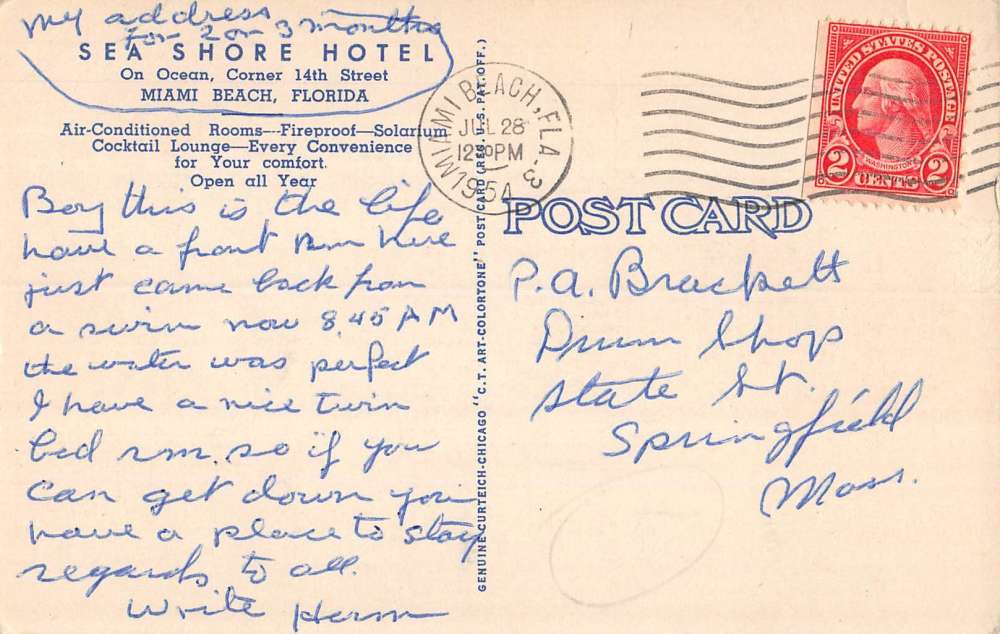 My address
for 2 or 3 months
SEA SHORE HOTEL
On Ocean, Corner 14th Street
MIAMI BEACH, FLORIDA
Air-Conditioned Rooms—Fireproof—Solarium
Cocktail Lounge—Every Convenience
for Your comfort.
Open all Year
Boy this is the life
have a front rm here
just came back from
a swim now 8.45 AM
the water was perfect
I have a nice twin
bed rm. so if you
can get down you
have a place to stay
regards to all.
Write Herm
GENUINE CURTEICH-CHICAGO "C.T. ART-COLORTONE" POST CARD (REG. U.S. PAT. OFF.)
MIAMI BEACH, FLA. 3
JUL 28
12 PM
1954
UNITED STATES POSTAGE
WASHINGTON
2 CENTS 2
POST CARD
P.A. Brackett
Drum Shop
State St.
Springfield
Mass.